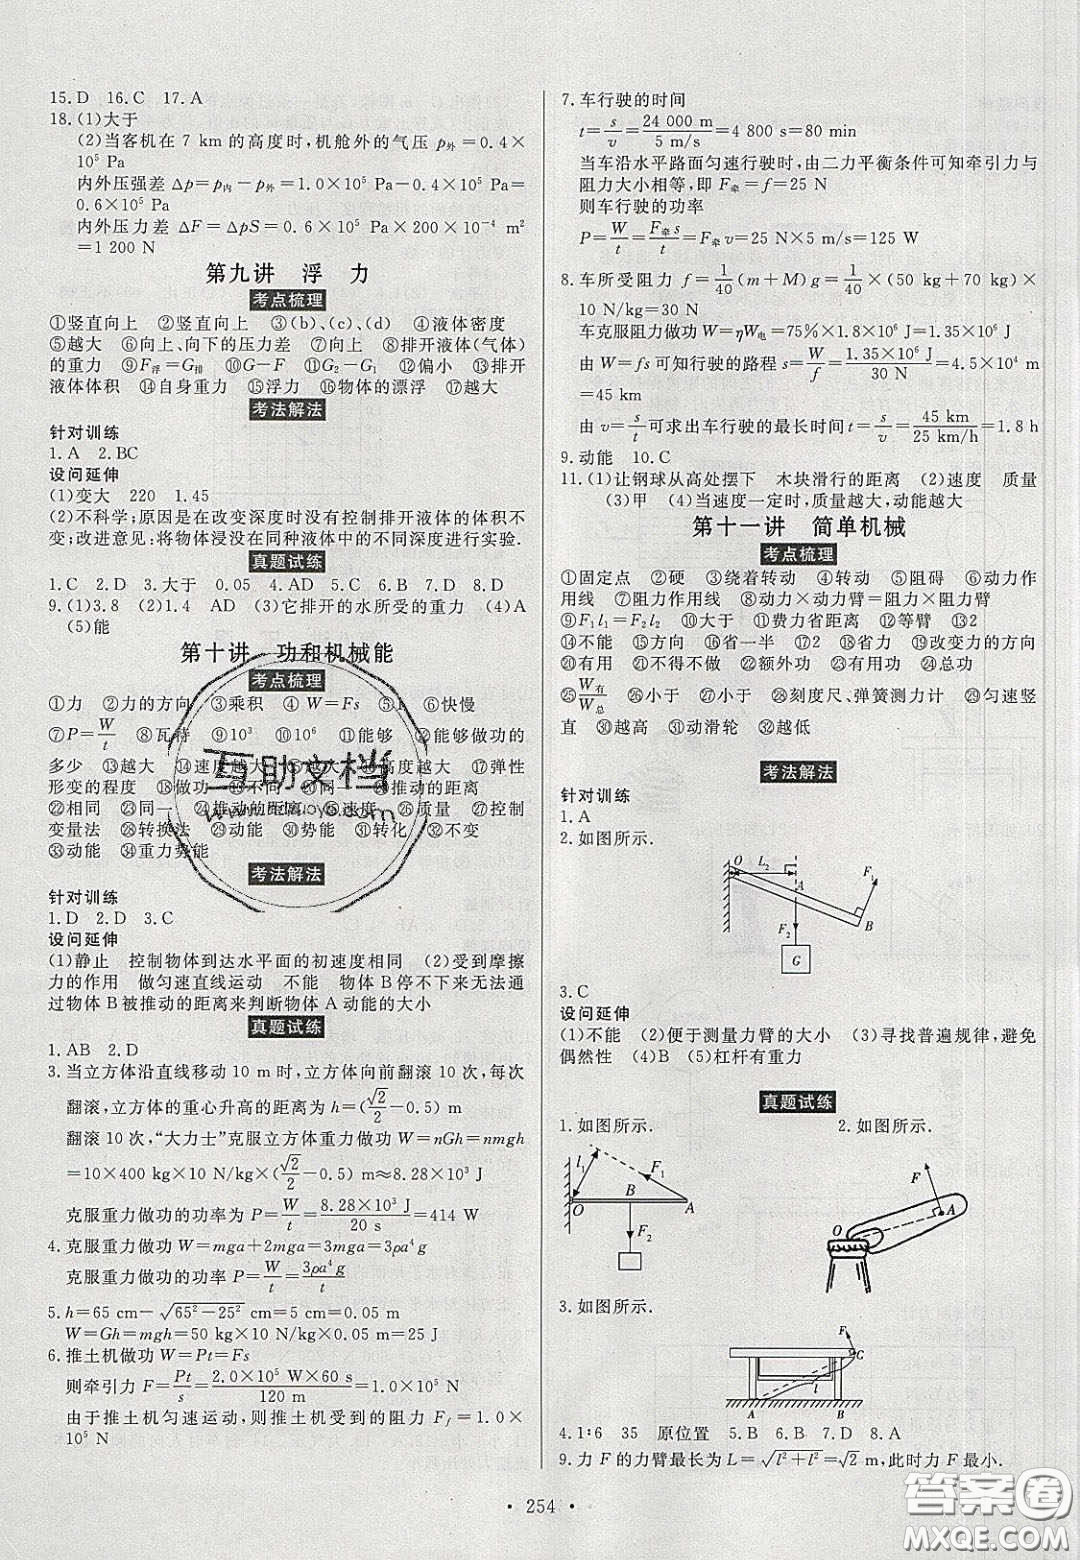 15.D 16.C 17.A
18.(1)大于
(2)当客机在 7 km 的高度时,机舱外的气压 p外=0.4×
10⁵ Pa
内外压强差 Δp=p内-p外=1.0×10⁵ Pa-0.4×10⁵ Pa=
0.6×10⁵ Pa
内外压力差 ΔF=ΔpS=0.6×10⁵ Pa×200×10⁻⁴ m²
=1 200 N
第九讲 浮 力
考点梳理
①竖直向上 ②竖直向上 ③(b)、(c)、(d) ④液体密度
⑤越大 ⑥向上、向下的压力差 ⑦向上 ⑧排开液体(气体)
的重力 ⑨F浮=G排 ⑩G-F ⑪G₂-G₁ ⑫偏小 ⑬排开
液体体积 ⑭自身重力 ⑮浮力 ⑯物体的漂浮 ⑰越大
考法解法
针对训练
1.A 2.BC
设问延伸
(1)变大 220 1.45
(2)不科学;原因是在改变深度时没有控制排开液体的体积不
变;改进意见:将物体浸没在同种液体中的不同深度进行实验.
真题试练
1.C 2.D 3.大于 0.05 4.AD 5.C 6.B 7.D 8.D
9.(1)3.8 (2)1.4 AD (3)它排开的水所受的重力 (4)A
(5)能
第十讲 功和机械能
考点梳理
①力 ②力的方向 ③乘积 ④W=Fs ⑤1 ⑥快慢
⑦P=W/t ⑧瓦特 ⑨10³ ⑩10⁶ ⑪能够 ⑫能够做功的
多少 ⑬质量 ⑭速度越大 ⑯高度越大 ⑰弹性
形变的程度 ⑱做功 不同 推动的距离
㉒相同 ㉓同一 ㉔推动的距离 ㉕速度 ㉖质量 ㉗控制
变量法 ㉘转换法 ㉙动能 ㉚势能 ㉛转化 ㉜不变
㉝动能 ㉞重力势能
考法解法
针对训练
1.D 2.D 3.C
设问延伸
(1)静止 控制物体到达水平面的初速度相同 (2)受到摩擦
力的作用 做匀速直线运动 不能 物体 B停不下来无法通
过物体 B被推动的距离来判断物体 A动能的大小
真题试练
1.AB 2.D
3.当立方体沿直线移动 10 m时,立方体向前翻滚 10次,每次
翻滚,立方体的重心升高的距离为 h=(√2/2-0.5) m
翻滚 10次,“大力士”克服立方体重力做功 W=nGh=nmgh
=10×400 kg×10 N/kg×(√2/2-0.5) m≈8.28×10³ J
克服重力做功的功率为 P=W/t=8.28×10³ J/20 s=414 W
4.克服重力做功 W=mga+2mga=3mga=3ρa⁴g
克服重力做功的功率 P=W/t=3ρa⁴g/t
5.h=65 cm-√(65²-25²) cm=5 cm=0.05 m
W=Gh=mgh=50 kg×10 N/kg×0.05 m=25 J
6.推土机做功 W=Pt=Fs
则牵引力 F=Pt/s=2.0×10⁵ W×60 s/120 m=1.0×10⁵ N
由于推土机匀速运动,则推土机受到的阻力 Ff=1.0×
10⁵ N
7.车行驶的时间
t=s/v=24 000 m/5 m/s=4 800 s=80 min
当车沿水平路面匀速行驶时,由二力平衡条件可知牵引力与
阻力大小相等,即 F牵=f=25 N
则车行驶的功率
P=W/t=F牵s/t=F牵v=25 N×5 m/s=125 W
8.车所受阻力 f=1/40(m+M)g=1/40×(50 kg+70 kg)×
10 N/kg=30 N
车克服阻力做功 W=ηW电=75%×1.8×10⁶ J=1.35×10⁶ J
由 W=fs可知行驶的路程 s=W/f=1.35×10⁶ J/30 N=4.5×10⁴ m
=45 km
由 v=s/t可求出车行驶的最长时间 t=s/v=45 km/25 km/h=1.8 h
9.动能 10.C
11.(1)让钢球从高处摆下 木块滑行的距离 (2)速度 质量
(3)甲 (4)当速度一定时,质量越大,动能越大
第十一讲 简单机械
考点梳理
①固定点 ②硬 ③绕着转动 ④转动 ⑤阻碍 ⑥动力作
用线 ⑦阻力作用线 ⑧动力×动力臂=阻力×阻力臂
⑨F₁l₁=F₂l₂ ⑩大于 ⑪费力省距离 ⑫等臂 ⑬2
⑭不能 ⑮方向 ⑯省一半 ⑰2 ⑱省力 ⑲改变力的方向
⑳有用 ㉑不得不做 ㉒额外功 ㉓有用 ㉔总功
㉕W有/W总 ㉖小于 ㉗小于 ㉘刻度尺、弹簧测力计 ㉙匀速竖
直 ㉚越高 ㉛动滑轮 ㉜越低
考法解法
针对训练
1.A
2.如图所示.
O L₂ A F₁ B F₂ G
3.C
设问延伸
(1)不能 (2)便于测量力臂的大小 (3)寻找普遍规律,避免
偶然性 (4)B (5)杠杆有重力
真题试练
1.如图所示. 2.如图所示.
l₁ F₁ O B A F₂
F A O
3.如图所示.
F C l A B
4.1∶6 35 原位置 5.B 6.B 7.D 8.A
9.力 F的力臂最长为 L=√(l²+l²)=√2 m,此时力 F最小.
· 254 ·
互助文档
答案圈
MXQE.COM